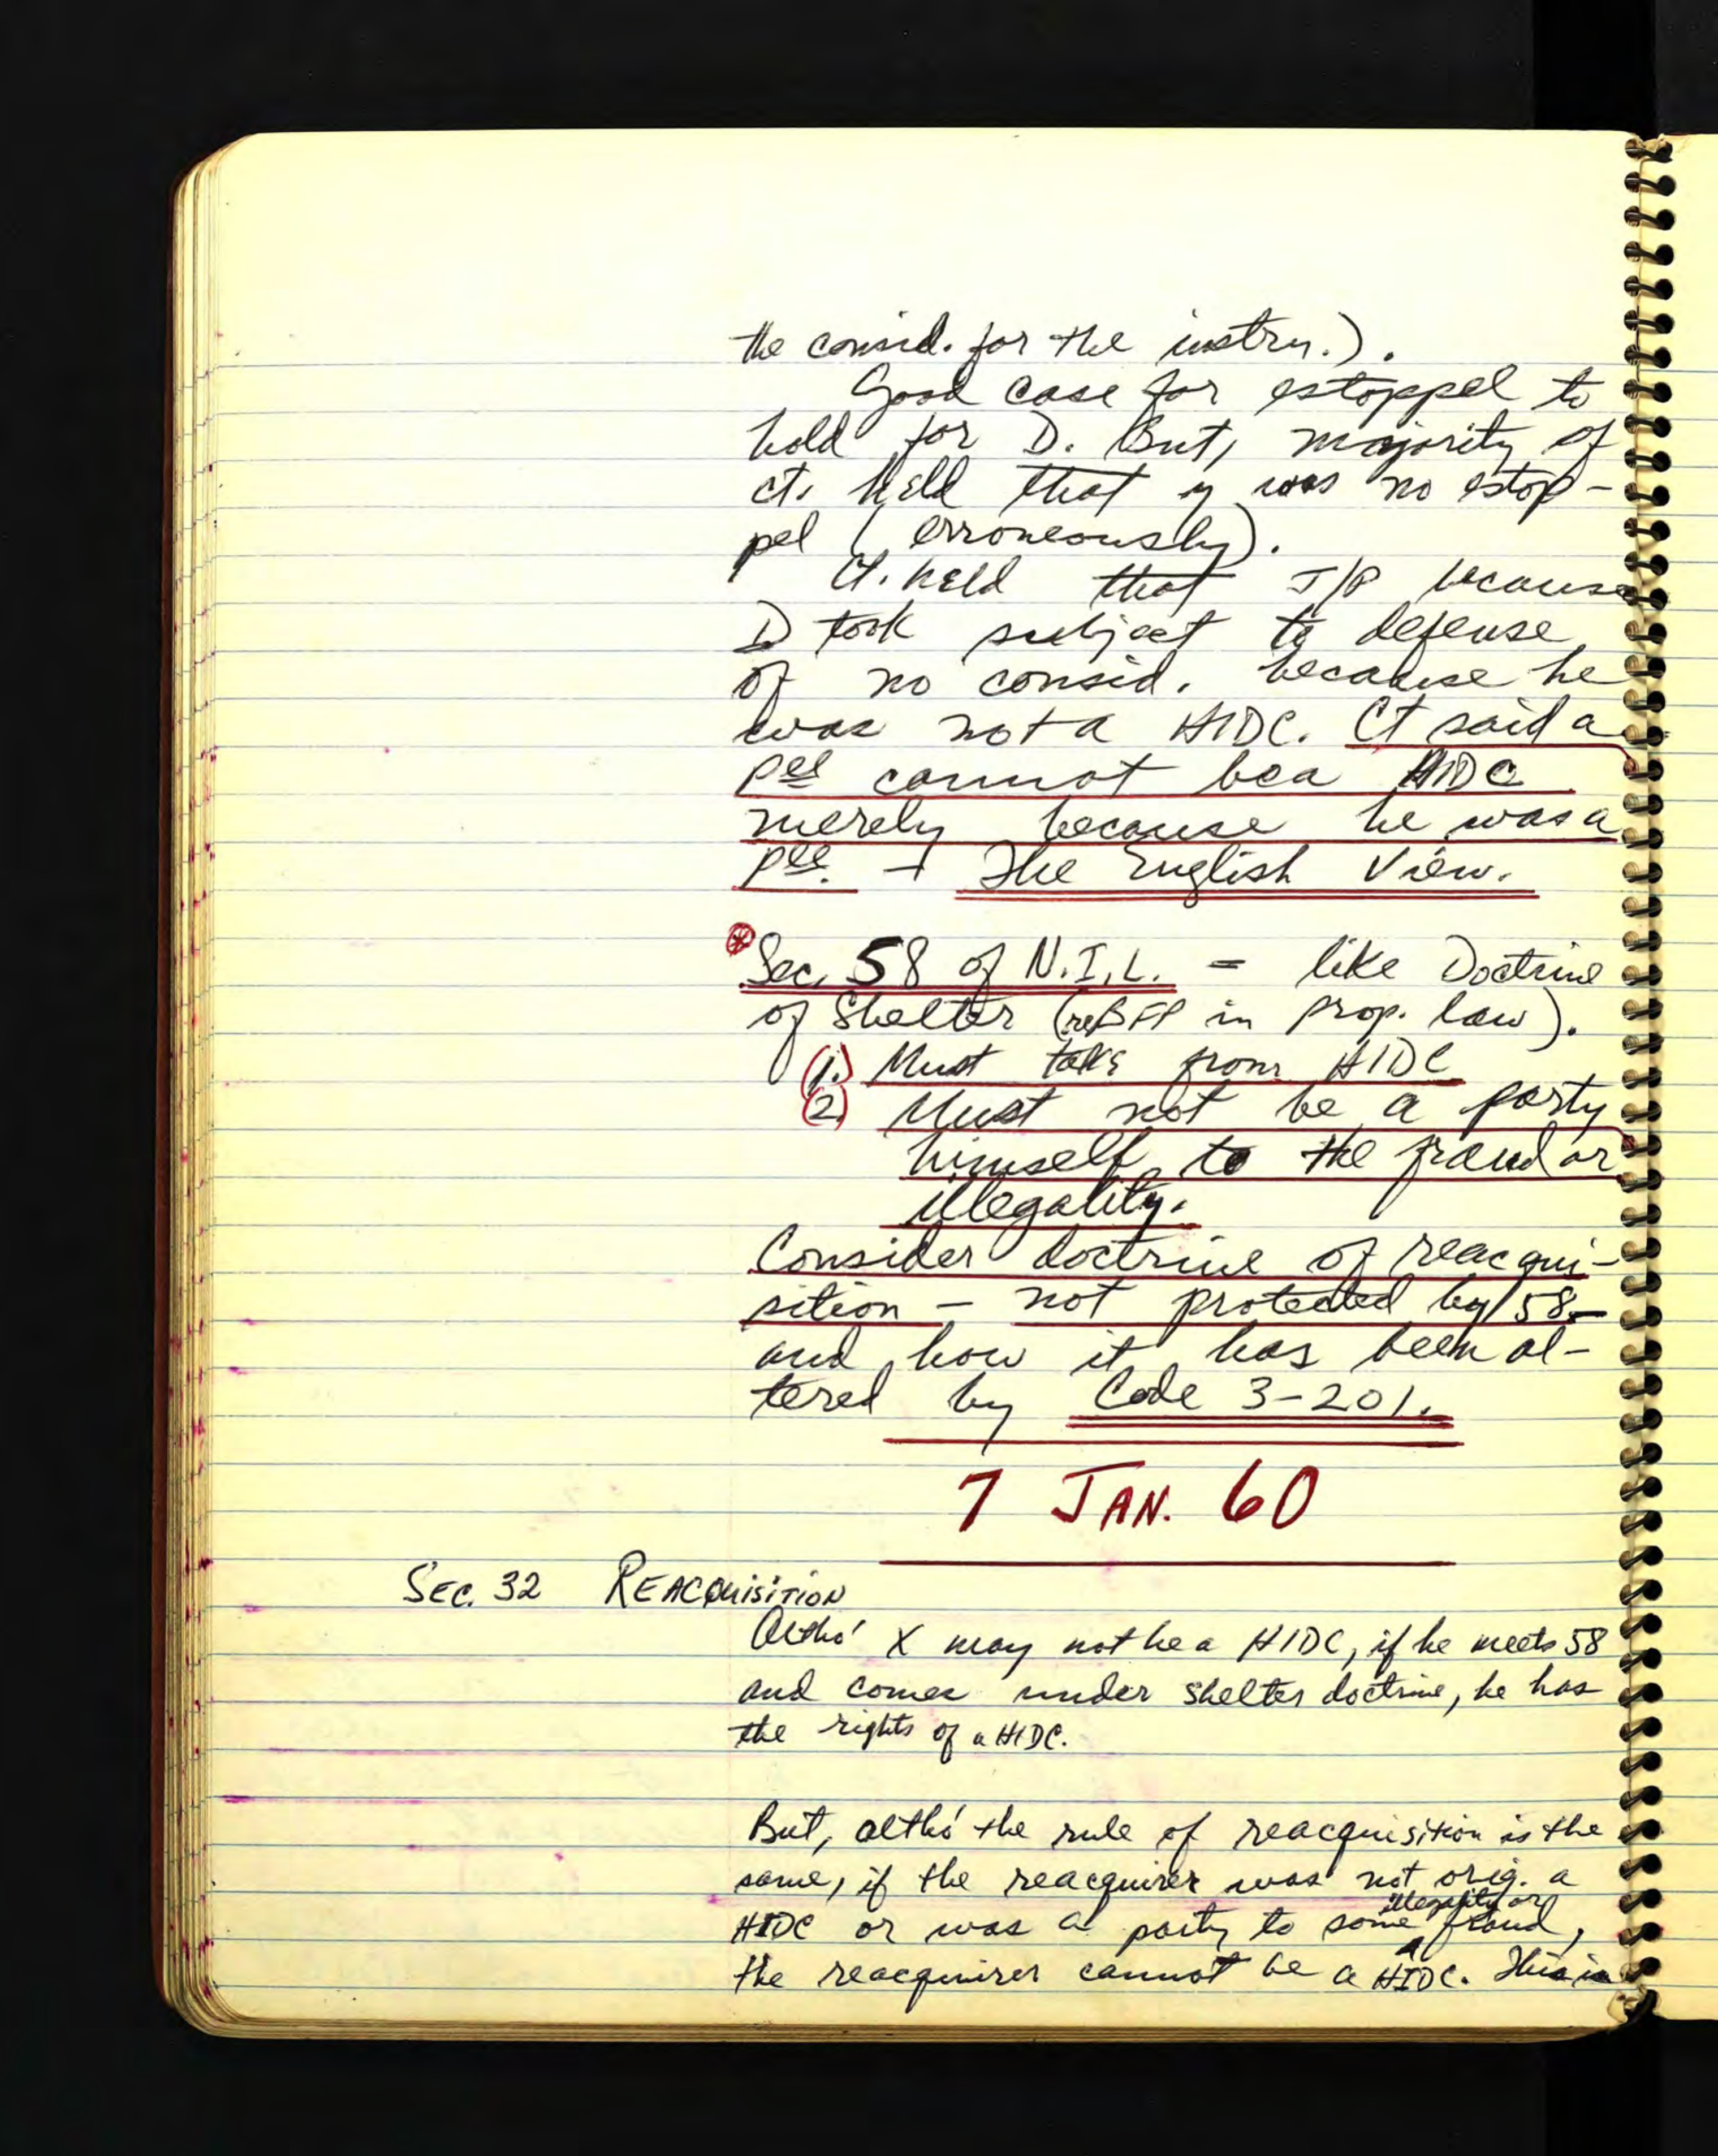 the consid. for the instru.).
Good case for estoppel to
hold for D. But, majority of
ct. held that y was no estop-
pel (erroneously).
Ct. held that J/P because
D took subject to defense
of no consid. because he
was not a HIDC. Ct said a
pee cannot be a HIDC
merely because he was a
pee. – The English View.
* Sec. 58 of N.I.L. = like Doctrine
of Shelter (re BFP in prop. law).
(1.) Must take from HIDC
(2) Must not be a party
himself to the fraud or
illegality.
Consider doctrine of reacqui-
sition – not protected by 58 –
and how it has been al-
tered by Code 3-201.
7 JAN. 60
SEC. 32 REACQUISITION
Altho' X may not be a HIDC, if he meets 58
and comes under shelter doctrine, he has
the rights of a HIDC.
But, altho' the rule of reacquisition is the
same, if the reacquirer was not orig. a
HIDC or was a party to some illegality or fraud,
the reacquirer cannot be a HIDC. This is